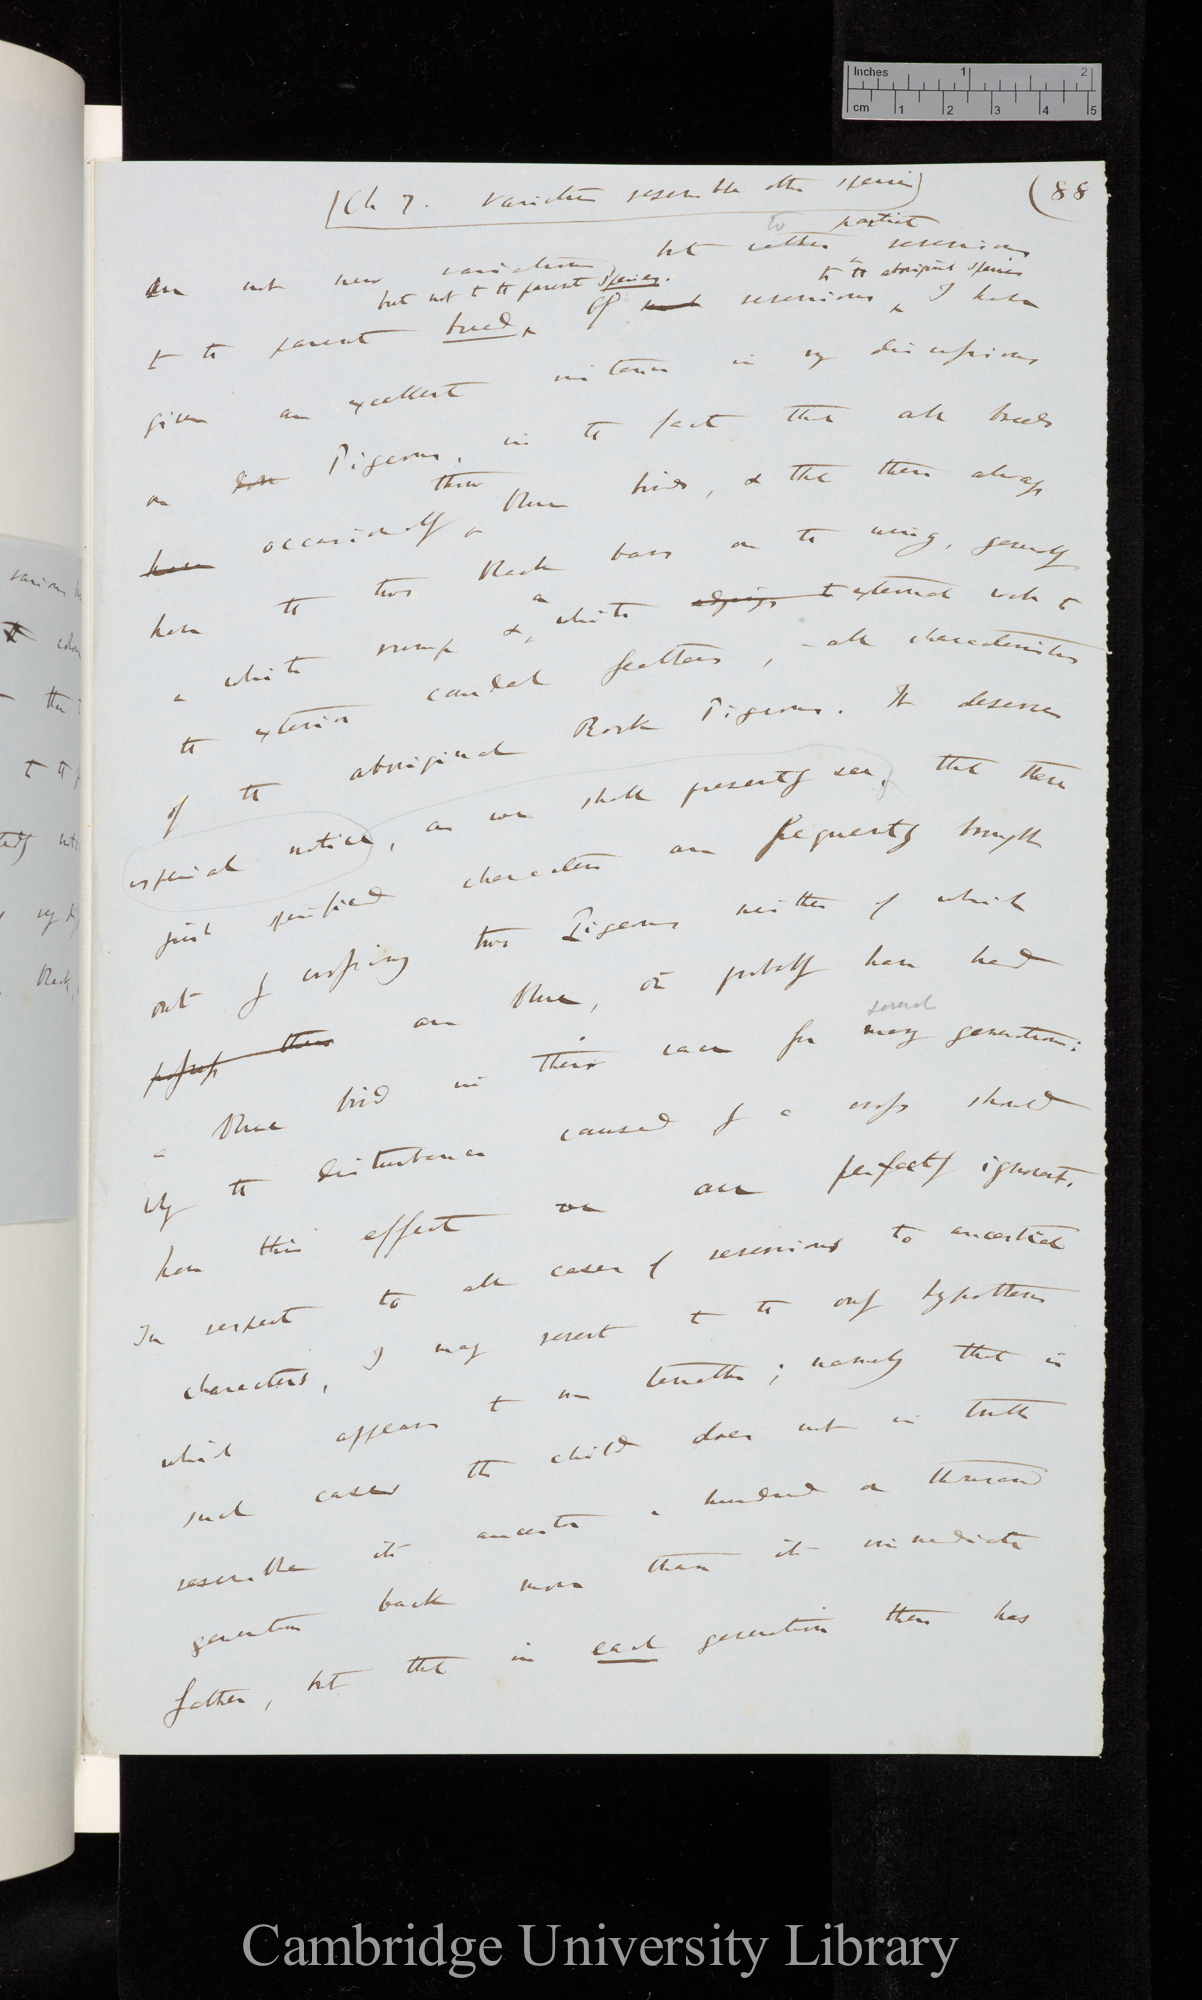 Inches 1 2
cm 1 2 3 4 5
(Ch 7. Varieties resemble other species)
(88
to partial
are not new variations but rather reversions
but not to the parent species. to the aboriginal species
to the parent breed. Of such reversions, I have
given an excellent instance in my discussions
on Pigeons, in the fact that all breeds
throw
have occasionally blue birds, & that these always
have the two black bars on the wing, generally
a white rump & a white edgings to external web to
the exterior caudal feathers, – all characteristics
of the aboriginal Rock Pigeons. It deserves
especial notice, as we shall presently see, that these
just specified characters are frequently brought
out by crossing two Pigeons neither of which
possess these are blue, or probably have had
several
a blue bird in their race for many generations;
why the disturbance caused by a cross should
have this effect we are perfectly ignorant.
In respect to all cases of reversions to ancestral
characters, I may revert to the only hypothesis
which appears to me tenable; namely that in
such cases the child does not in truth
resemble its ancestor a hundred or thousand
generation back more than its immediate
father, but that in each generation there has
various
colour
the
to the
not
my
black,
Cambridge University Library